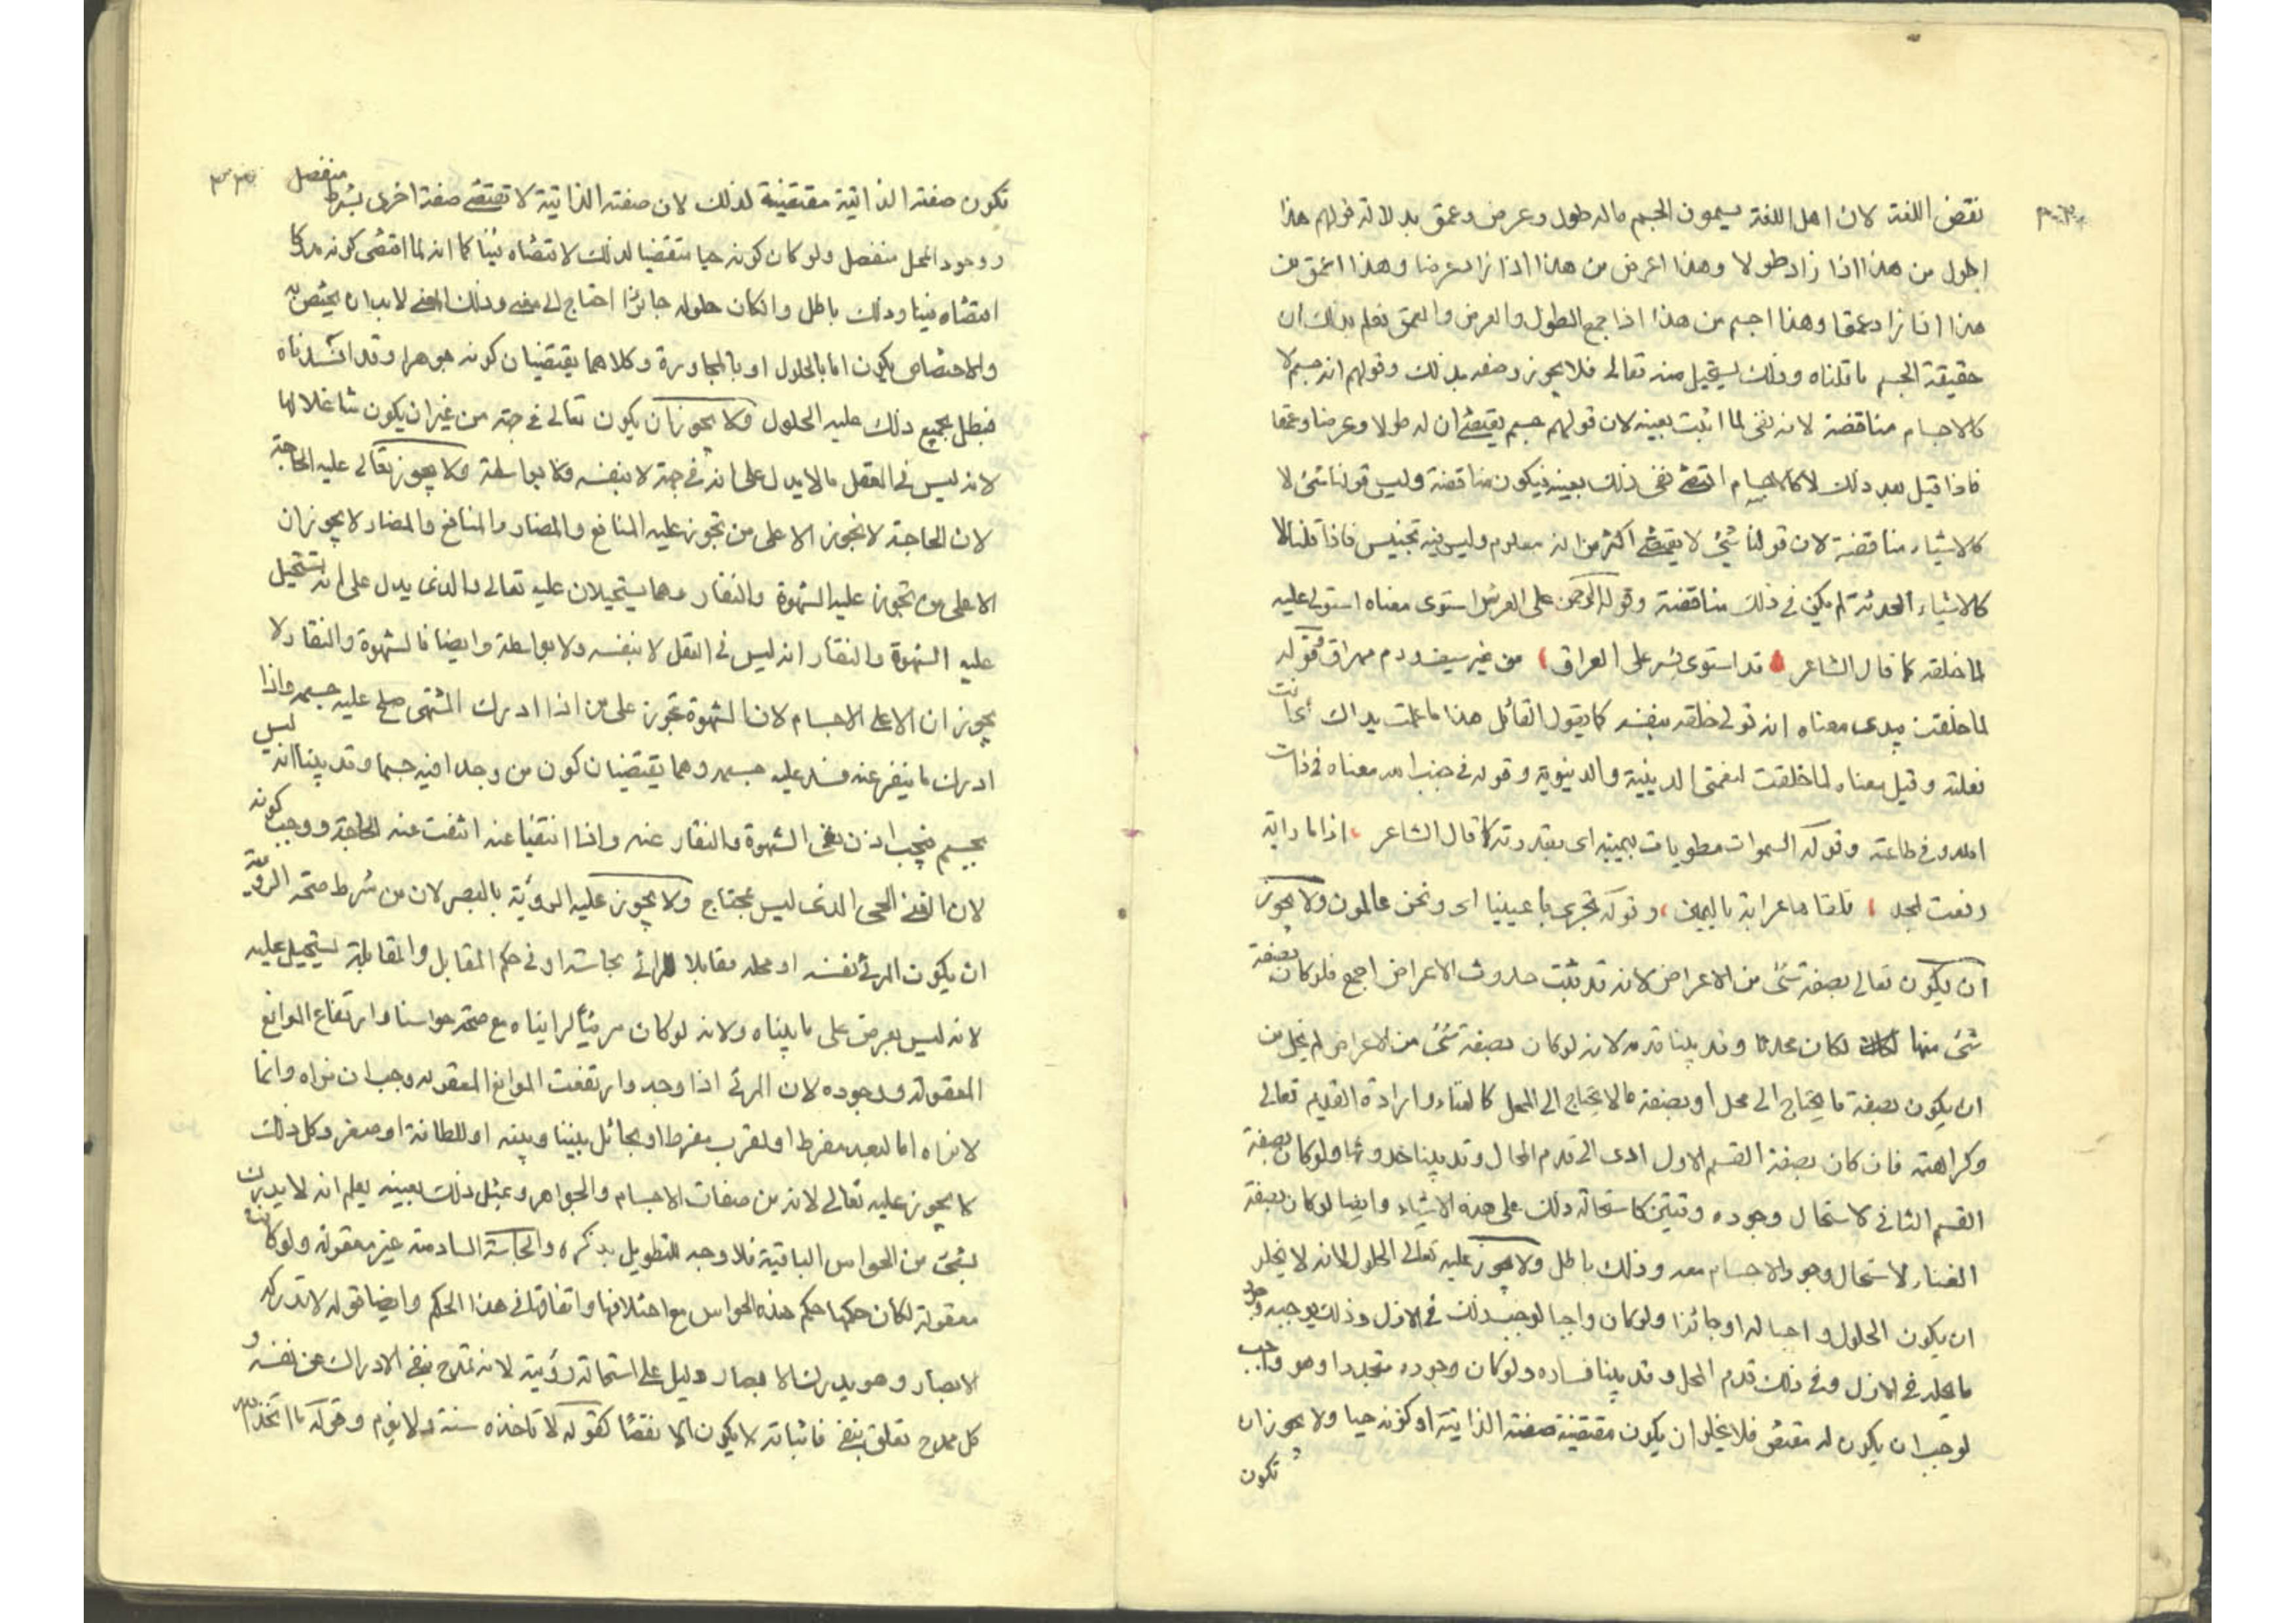 نقض اللغة لان اهل اللغة يسمون الجسم ماله طول وعرض وعمق بدلالة قولهم هذا
اطول من هذا اذا زاد طولا وهذا اعرض من هذا اذا زاد عرضا وهذا اعمق من
هذا اذا زاد عمقا وهذا اجسم من هذا اذا جمع الطول والعرض والعمق فعلم بذلك ان
حقيقة الجسم ما قلناه وذلك يستحيل منه تعالى فلا يجوز وصفه بذلك وقولهم انه جسم لا
كالاجسام مناقضة لانه نفى لما اثبت بعينه لان قولهم جسم يقتضى ان له طولا وعرضا وعمقا
فاذا قيل بعد ذلك لا كالاجسام اقتضى نفى ذلك بعينه فيكون مناقضة وليس قولنا شئ لا
كالاشياء مناقضة لان قولنا شئ لا يقتضى اكثر من انه معلوم وليس فيه تجنيس فاذا قلنا لا
كالاشياء المحدثة لم يكن فى ذلك مناقضة وقوله الرحمن على العرش استوى معناه استولى عليه
لما خلقه كما قال الشاعر قد استوى بشر على العراق من غير سيف ودم مهراق وقوله
لما خلقت بيدى معناه انه تولى خلقه بنفسه كما يقول القائل هذا ما عملت يداك اى انت
فعلته وقيل معناه لما خلقت لنعمتى الدينية والدنيوية وقوله فى جنب الله معناه فى ذات
الله وفى طاعته وقوله السموات مطويات بيمينه اى بقدرته كما قال الشاعر اذا ما راية
رفعت لمجد تلقاها عرابة باليمين وقوله تجرى باعيننا اى ونحن عالمون ولا يجوز
ان يكون تعالى بصفة شئ من الاعراض لانه قد ثبت حدوث الاعراض اجمع فلو كان بصفة
شئ منها لكان محدثا وقد بينا قدمه لانه لو كان بصفة شئ من الاعراض لم يخل من
ان يكون بصفة ما يحتاج الى محل او بصفة مالا يحتاج الى المحل كالفناء وارادة القديم تعالى
وكراهته فان كان بصفة القسم الاول ادى الى قدم المحال وقد بينا حدوثها ولو كان بصفة
القسم الثانى لاستحال وجوده وقتين كاستحالة ذلك على هذه الاشياء وايضا لو كان بصفة
الفناء لاستحال وجود الاجسام معه وذلك باطل ولا يجوز عليه تعالى الحلول لانه لا يخلو
ان يكون الحلول واجبا له او جائزا ولو كان واجبا لوجب ذلك فى الازل وذلك يوجب وجود
ما يحله فى الازل وفى ذلك قدم المحل وقد بينا فساده ولو كان وجوده متجددا وهو واجب
لوجب ان يكون له مقتض فلا يخلو ان يكون مقتضيه صفته الذاتية او كونه حيا ولا يجوز ان
تكون
تكون صفته الذاتية مقتضية لذلك لان صفته الذاتية لا تقتضى صفة اخرى بشرط منفصل
ووجود المحل منفصل ولو كان كونه حيا مقتضيا لذلك لاقتضاه فينا كما انه لما اقتضى كونه مدركا
اقتضاه فينا وذلك باطل وان كان حلوله جائزا احتاج الى معنى وذلك المعنى لا بد ان يختص به
والاختصاص يكون اما بالحلول او بالمجاورة وكلاهما يقتضيان كونه جوهرا وقد افسدناه
فبطل بجميع ذلك عليه الحلول ولا يجوز ان يكون تعالى فى جهة من غير ان يكون شاغلا لها
لانه ليس فى العقل مالا يدل على انه فى جهة لا بنفسه ولا بواسطة ولا يجوز تعالى عليه الحاجة
لان الحاجة لا تجوز الا على من تجوز عليه المنافع والمضار والمنافع والمضار لا يجوزان
الا على من تجوز عليه الشهوة والنفار وهما يستحيلان عليه تعالى والذى يدل على انه تستحيل
عليه الشهوة والنفار انه ليس فى العقل لا بنفسه ولا بواسطة وايضا فالشهوة والنفار لا
يجوزان الا على الاجسام لان الشهوة تجوز على من اذا ادرك المشتهى صلح عليه جسمه واذا
ادرك ما ينفر عنه فسد عليه جسمه وهما يقتضيان كون من وجدا فيه جسما وقد بينا انه ليس
بجسم فيجب اذن نفى الشهوة والنفار عنه واذا انتفيا عنه انتفت عنه الحاجة ووجب كونه
لان الغنى الحى الذى ليس بمحتاج ولا يجوز عليه الرؤية بالبصر لان من شرط صحة الرؤية
ان يكون المرئى نفسه او محله مقابلا للرائى بحاسته او فى حكم المقابل والمقابلة يستحيل عليه
لانه ليس بعرض على ما بيناه ولانه لو كان مرئيا لرايناه مع صحة حواسنا وارتفاع الموانع
المعقولة ووجوده لان المرئى اذا وجد وارتفعت الموانع المعقولة وجب ان نراه وانما
لا نراه اما لبعد مفرط او لقرب مفرط او لحائل بيننا وبينه او للطافة او صغر وكل ذلك
لا يجوز عليه تعالى لانه من صفات الاجسام والجواهر وبمثل ذلك بعينه يعلم انه لا يدرك
بشئ من الحواس الباقية فلا وجه للتطويل بذكره والحاسة السادسة غير معقولة ولو كانت
معقولة لكان حكمها حكم هذه الحواس مع اختلافها واتفاقها فى هذا الحكم وايضا قوله لا تدركه
الابصار وهو يدرك الابصار دليل على استحالة رؤيته لانه تمدح بنفى الادراك عن نفسه و
كل تمدح تعلق بنفى فاثباته لا يكون الا نقصا كقوله لا تاخذه سنة ولا نوم وقوله ما اتخذ الله